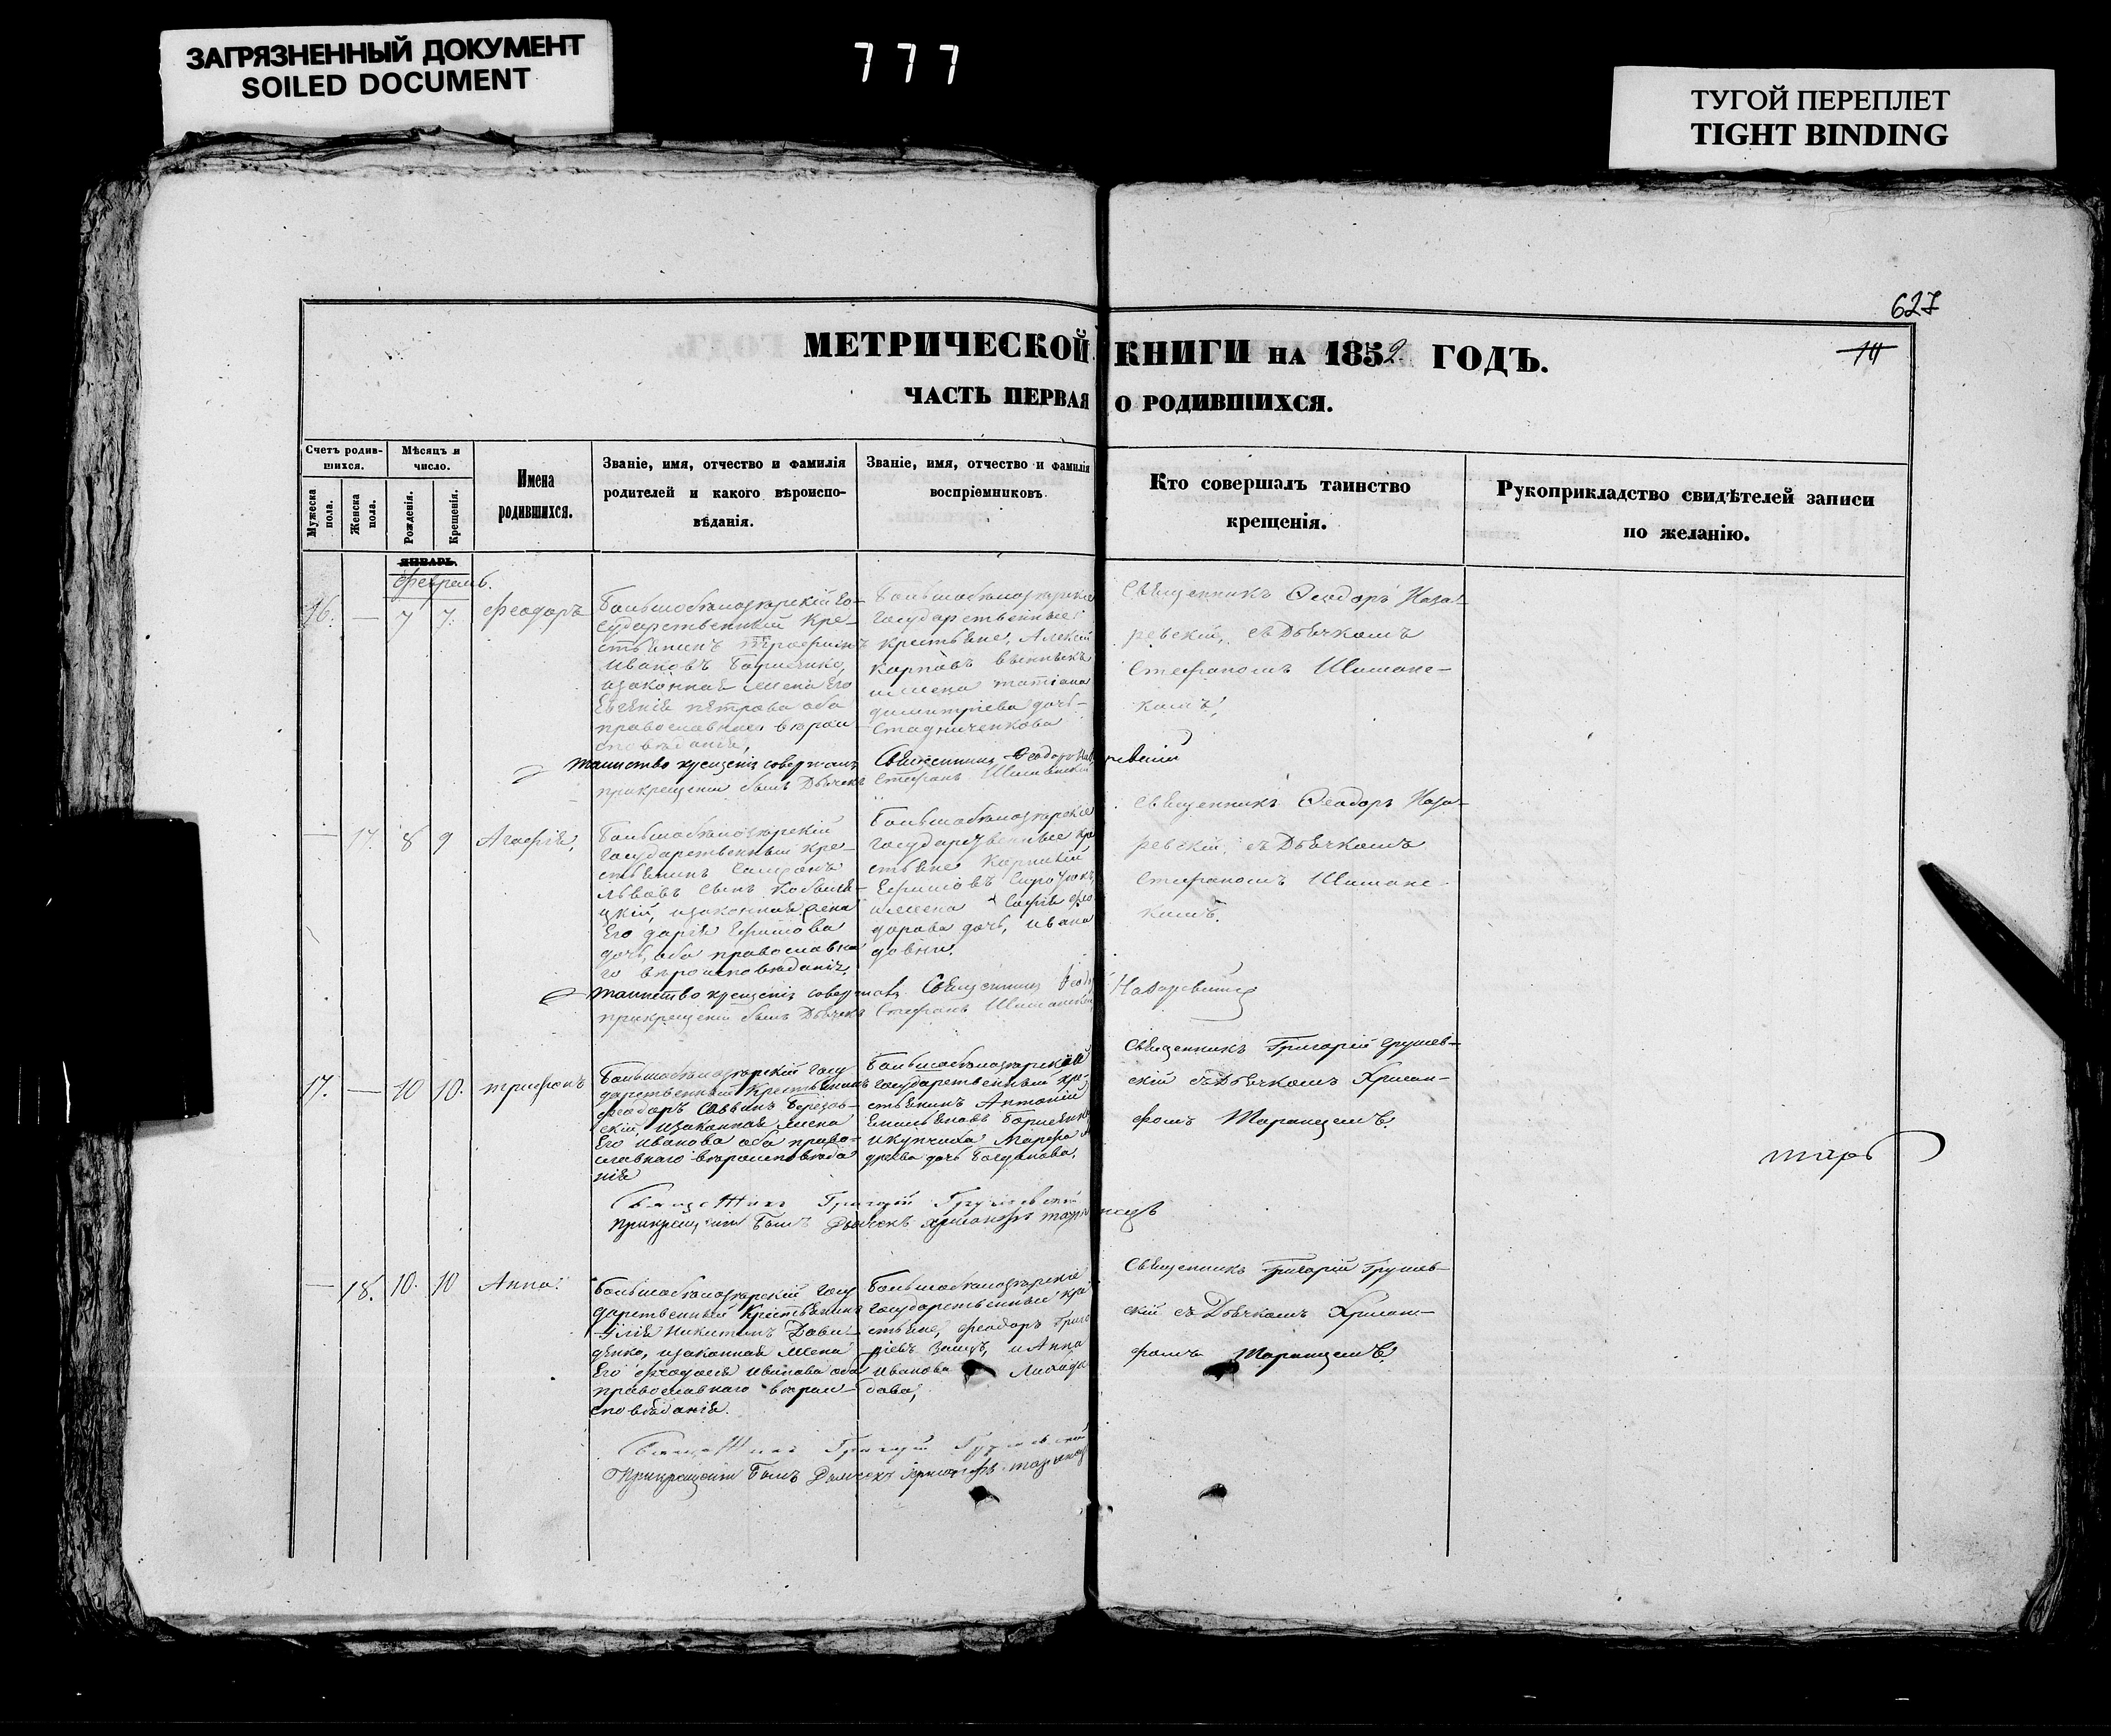 ЗАГРЯЗНЕННЫЙ ДОКУМЕНТ
SOILED DOCUMENT
777
ТУГОЙ ПЕРЕПЛЕТ
TIGHT BINDING
627
МЕТРИЧЕСКОЙ КНИГИ НА 1852 ГОДЪ.
ЧАСТЬ ПЕРВАЯ О РОДИВШИХСЯ.
Счетъ родив-
шихся.
Мужеска пола.
Женска пола.
Мѣсяцъ и
число.
Рожденія.
Крещенія.
Имена
родившихся.
Званіе, имя, отчество и фамилія
родителей и какого вѣроиспо-
вѣданія.
Званіе, имя, отчество и фамилія
воспріемниковъ
Кто совершалъ таинство
крещенія.
Рукоприкладство свидѣтелей записи
по желанію.
ЯНВАРЬ.
7 7. Феодоръ
Большобѣлозѣрскій Го-
сударственный Кре-
стьянинъ
Ивановъ
изаконная жена Его
Евгенія Петрова оба
православнаго вѣрои-
сповѣданія,
Государственные
крестьяне, Алексѣй
Карповъ
ижена Татіана
Димитріева дочь
Стадниченкова
Священникъ Феодоръ Наза-
ревскій, съ Дьячкомъ
Стефаномъ Шиманс-
кимъ,
Таинство крещенія совершалъ Священникъ Феодоръ Назаревскій
при крещеніи былъ Дьячекъ Стефанъ Шиманскій
— 17. 8 9 Агафія,
Большобѣлозѣрскій
Государственный Кре-
стьянинъ
Львовъ сынъ
цкій, изаконная жена
Его Дарія Ефимова
дочь, оба православна
го вѣроисповѣданія,
Большобѣлозѣрскіе
Государственные кре
стьяне Корнилій
Ефимовъ
ижена Софія Фео
дорова дочь, Ивана
довни.
Священникъ Феодоръ Наза-
ревскій, съ Дьячкомъ
Стефаномъ Шиманс-
кимъ.
Таинство крещенія совершалъ Священникъ Феодоръ Назаревскій
при крещеніи былъ Дьячекъ Стефанъ Шиманскій
17. — 10 10. Трифонъ
Большобѣлозѣрскій Госу
дарственный Крестьянинъ
Феодоръ Саввинъ Березов-
скій, изаконная жена
Его Иванова оба право-
славнаго вѣроисповѣда
нія
Большобѣлозѣрскій
Государственный кре-
стьянинъ Антоній
Емельяновъ
икупчиха Марфа
дреева дочь Богданова,
Священникъ Григорій Грушев-
скій съ Дьячкомъ Хрисан-
фомъ Таранцемъ.
Священникъ Григорій Грушевскій
при крещеніи былъ Дьячекъ Хрисанфъ Таранецъ
— 18. 10. 10 Анна.
Большобѣлозѣрскій Госу
дарственный Крестьянинъ
Илія Никитинъ Дави-
денко, изаконная жена
Его Феодосія Иванова оба
православнаго вѣрои-
сповѣданія.
Большобѣлозѣрскіе
Государственные кре
стьяне, Феодоръ Григо
ріевъ Заецъ, и Анна
Иванова
Священникъ Григорій Грушев-
скій съ Дьячкомъ Хрисан-
фомъ Таранцемъ.
Священникъ Григорій Грушевскій
при крещеніи былъ Дьячекъ Хрисанфъ Таранецъ